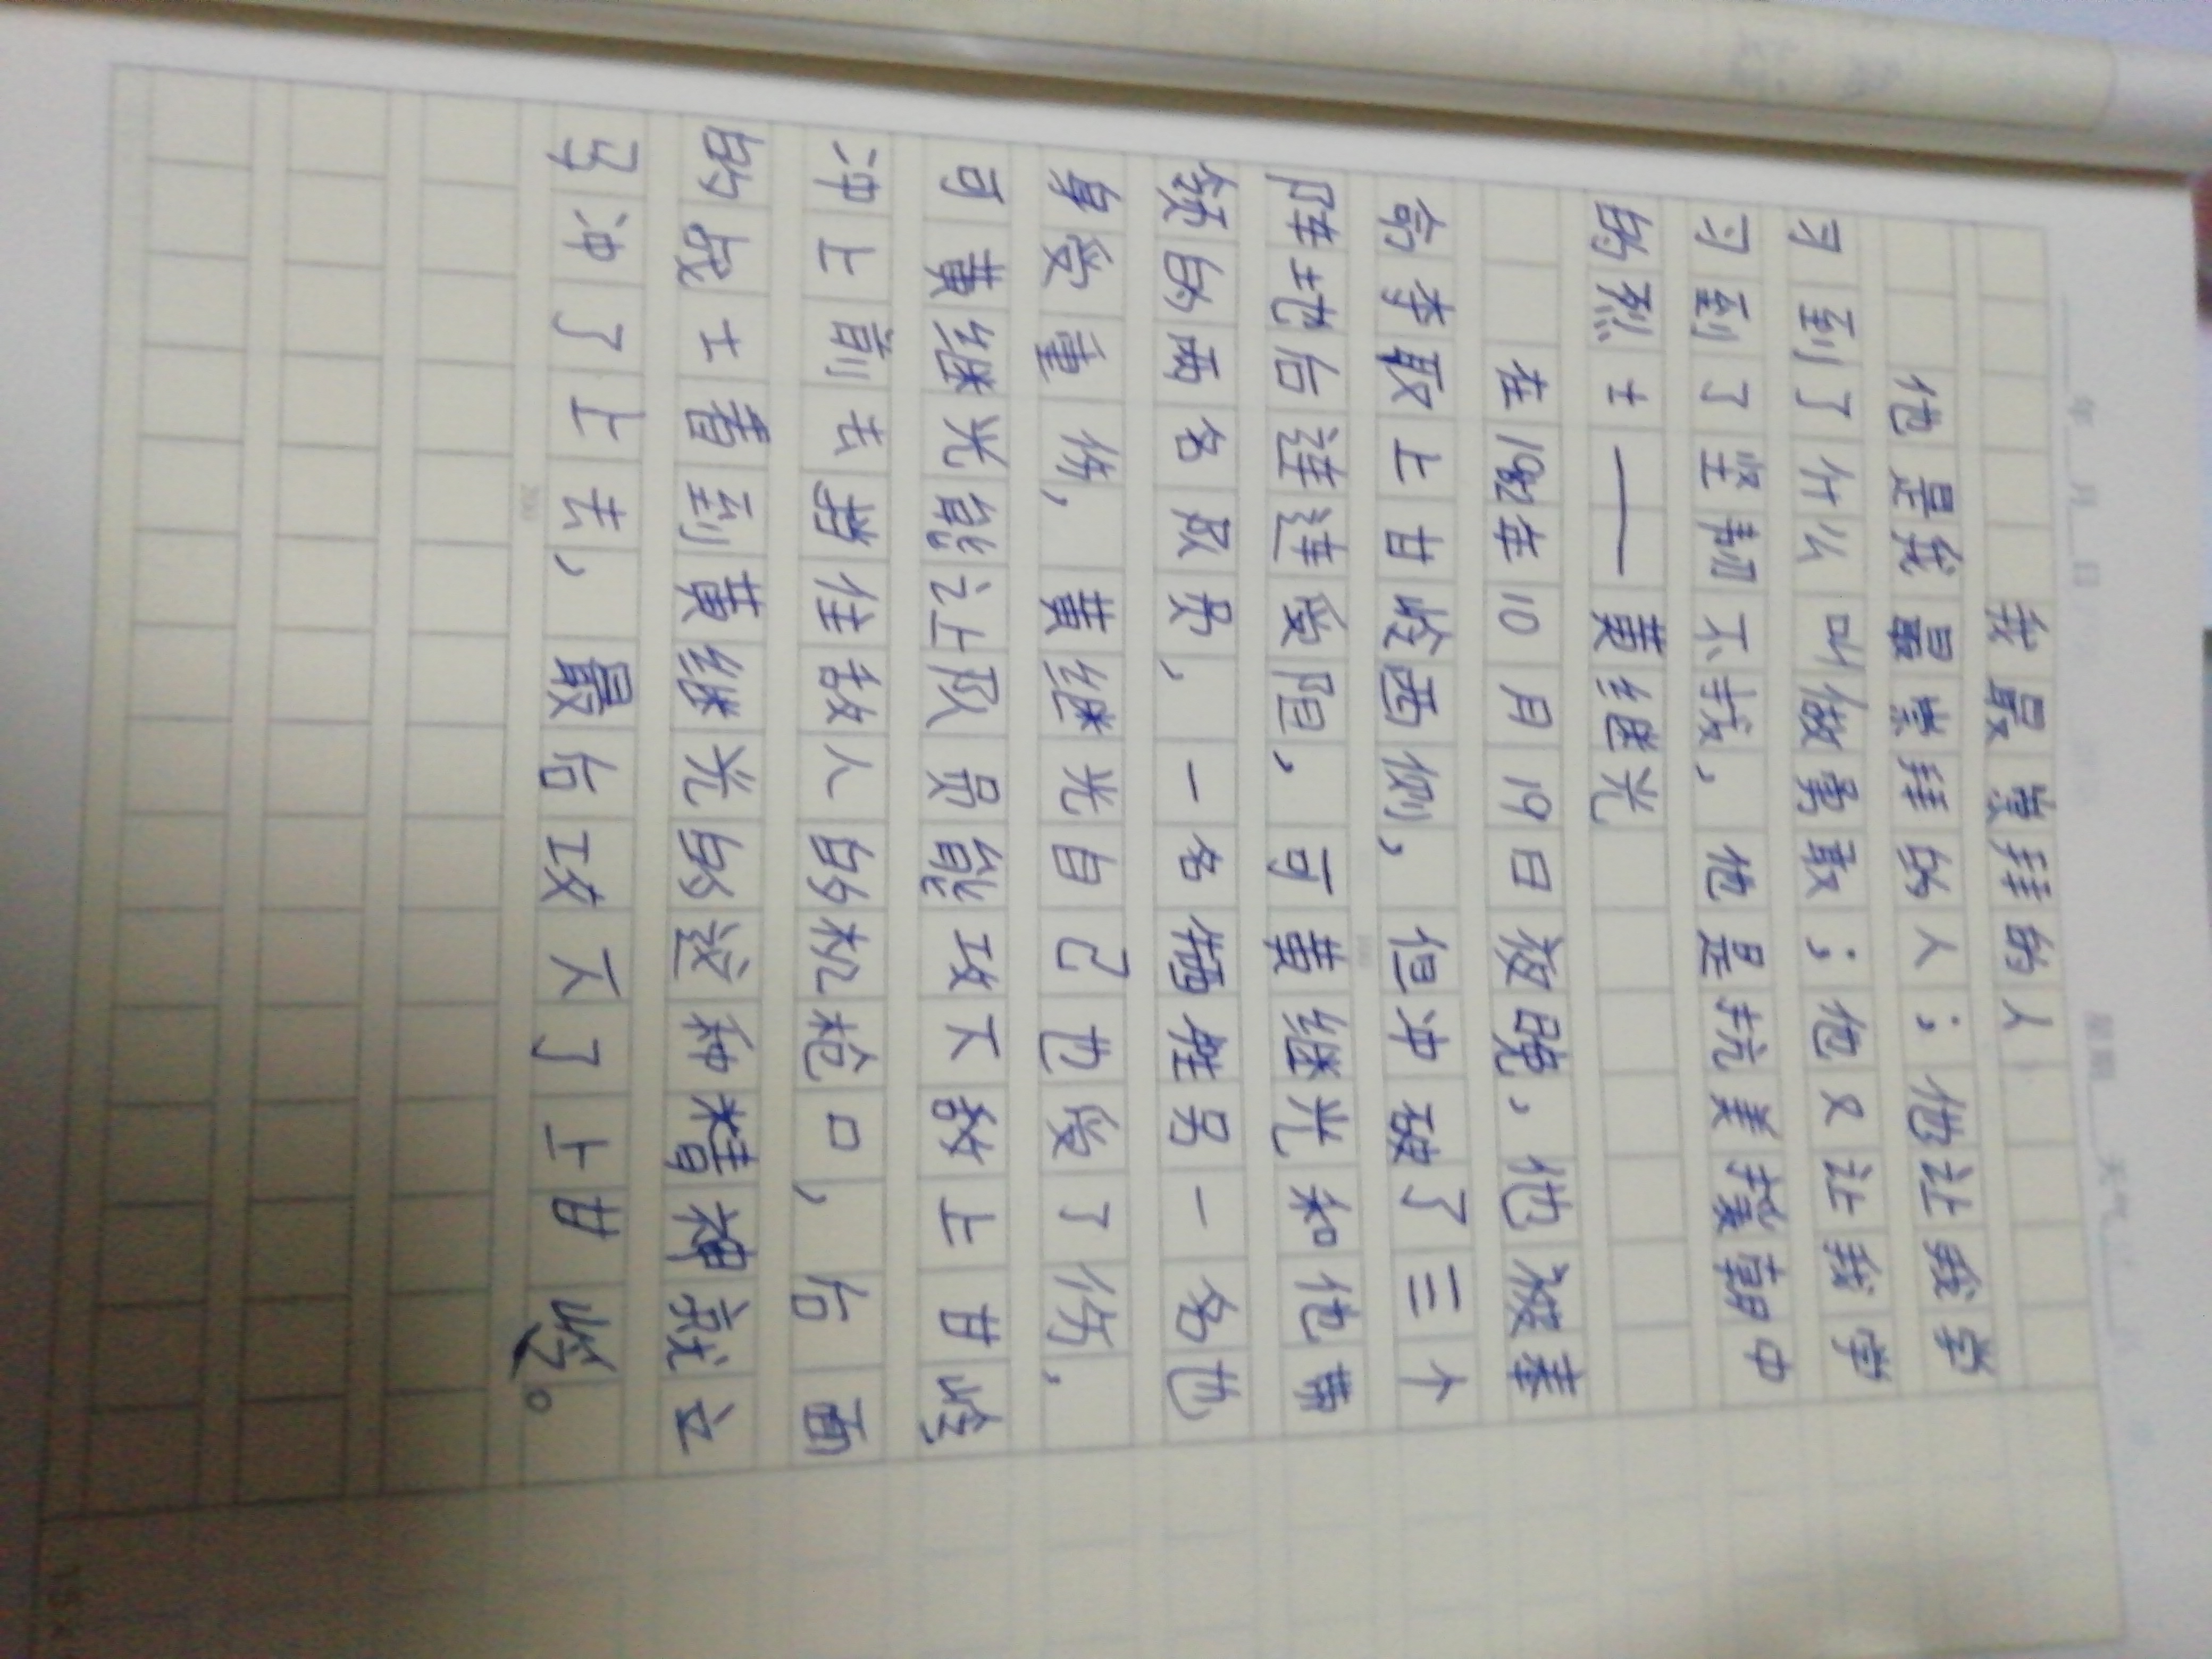 我最崇拜的人
他是我最崇拜的人；他让我学
习到了什么叫做勇敢；他又让我学
习到了坚韧不拔，他是抗美援朝中
的烈士——黄继光
在1952年10月19日夜晚，他被奉
命夺取上甘岭西侧，但冲破了三个
阵地后连连受阻，可黄继光和他带
领的两名队员，一名牺牲另一名也
身受重伤，黄继光自己也受了伤，
可黄继光能让队员能攻下敌上甘岭
冲上前去挡住敌人的机枪口，后面
的战士看到黄继光的这种精神就立
马冲了上去，最后攻下了上甘岭。
年 月 日 星期 天气